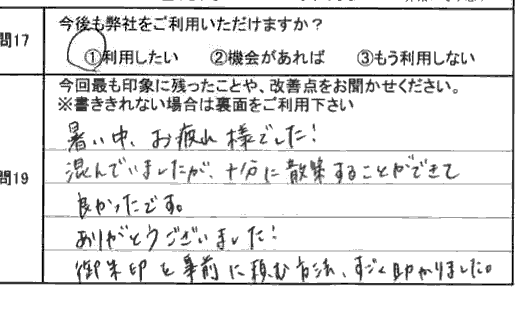 問17
今後も弊社をご利用いただけますか？
①利用したい ②機会があれば ③もう利用しない
問19
今回最も印象に残ったことや、改善点をお聞かせください。
※書ききれない場合は裏面をご利用下さい
暑い中、お疲れ様でした！
混んでいましたが、十分に散策することができて
良かったです。
ありがとうございました！
御朱印を事前に頼む方法、すごく助かりました。